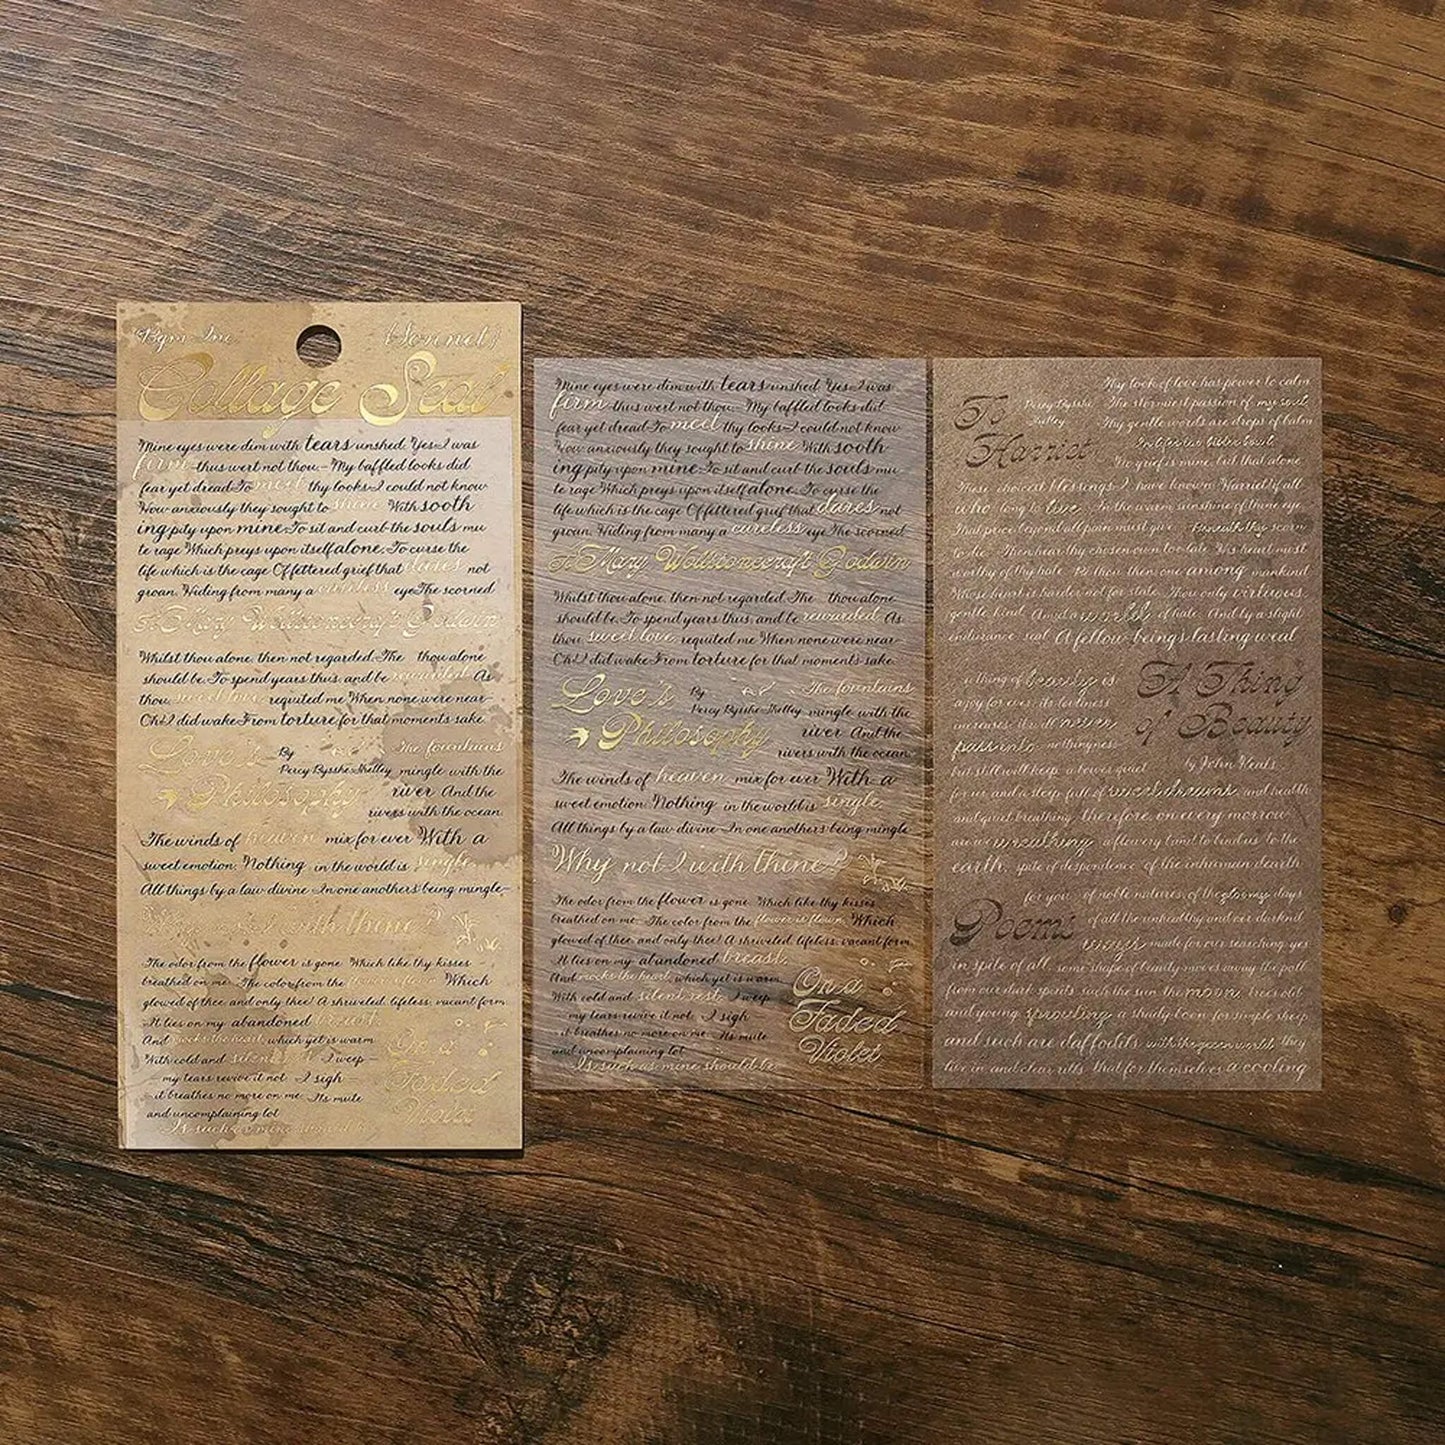 Bgm Inc.
(Sonnet)
Collage Seal
Mine eyes were dim with tears unshed. Yes-I was
firm-thus wert not thou.-My baffled looks did
fear yet dread-To meet thy looks-I could not know
How anxiously they sought to shine With sooth
ing pity upon mine.To sit and curb the souls mu
te rage Which preys upon itself alone. To curse the
life which is the cage Of fettered grief that dares not
groan, Hiding from many a careless eyeThe scorned
To Mary Wollstonecraft Godwin
Whilst thou alone, then not regarded.The thou alone
should be.To spend years thus, and be rewarded As
thou sweet love requited me When none were near-
Oh!I did wake From torture for that moments sake.
Love's
Philosophy
By
Percy Bysshe Shelley
The fountains
mingle with the
river And the
rivers with the ocean.
The winds of heaven mix for ever With a
sweet emotion. Nothing in the world is single.
All things by a law divine In one anothers being mingle-
with thine?
The odor from the flower is gone Which like thy kisses
breathed on me The color from the flower is flown Which
glowed of thee and only thee! A shriveled, lifeless, vacant form
It lies on my abandoned breast.
And mocks the heart, which yet is warm
With cold and silent rest. I weep-
-my tears revive it not I sigh-
-it breathes no more on me Its mute
and uncomplaining lot
Is such as mine should be
On a
Faded
Violet
Mine eyes were dim with tears unshed. Yes-I was
firm-thus wert not thou.-My baffled looks did
fear yet dread-To meet thy looks-I could not know
How anxiously they sought to shine With sooth
ing pity upon mine.To sit and curb the souls mu
te rage Which preys upon itself alone. To curse the
life which is the cage Of fettered grief that dares not
groan, Hiding from many a careless eyeThe scorned
To Mary Wollstonecraft Godwin
Whilst thou alone, then not regarded.The thou alone
should be.To spend years thus, and be rewarded As
thou sweet love requited me When none were near-
Oh!I did wake From torture for that moments sake.
Love's
Philosophy
By
Percy Bysshe Shelley
The fountains
mingle with the
river And the
rivers with the ocean.
The winds of heaven mix for ever With a
sweet emotion. Nothing in the world is single.
All things by a law divine In one anothers being mingle
Why not I with thine?
The odor from the flower is gone Which like thy kisses
breathed on me The color from the flower is flown Which
glowed of thee and only thee! A shriveled, lifeless, vacant form
It lies on my abandoned breast.
And mocks the heart, which yet is warm
With cold and silent rest. I weep
my tears revive it not I sigh
it breathes no more on me Its mute
and uncomplaining lot
Is such as mine should be
On a
Faded
Violet
To
Harriet
Percy Bysshe
Shelley
Thy look of love has power to calm
The stormiest passion of my soul
Thy gentle words are drops of balm
No grief is mine, but that alone
These choicest blessings I have known Harriet! if all
who long to live In the warm sunshine of thine eye
That price beyond all pain must give Beneath thy scorn
to die Then hear thy chosen own too late His heart most
worthy of thy hate Be thou then one among mankind
Whose heart is harder not for state Thou only virtuous
gentle kind Amid a world of hate And by a slight
endurance seal A fellow-beings lasting weal
A Thing
of Beauty
by John Keats
a thing of beauty is
a joy for ever, its loveliness
increases it will never
pass into nothingness
but still will keep a bower quiet
for us and a sleep full of sweet dreams, and health
and quiet breathing therefore, on every morrow
are we wreathing a flowery band to bind us to the
earth, spite of despondence of the inhuman dearth
Poems
of noble natures, of the gloomy days
of all the unhealthy and oer darknd
ways made for our searching yes
in spite of all, some shape of beauty moves away the pall
from our dark spirits such the sun the moon trees old
and young sprouting a shady boon for simple sheep
and such are daffodils with the green world they
live in and clear rills that for themselves a cooling